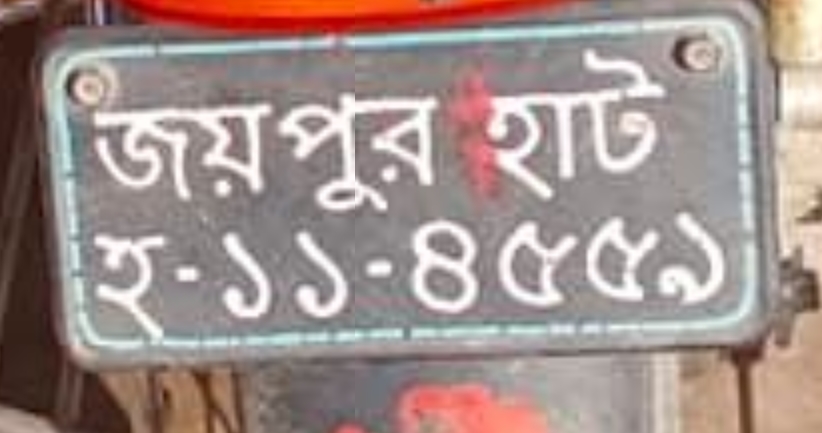 জয়পুর হাট
হ-১১-৪৫৫৯